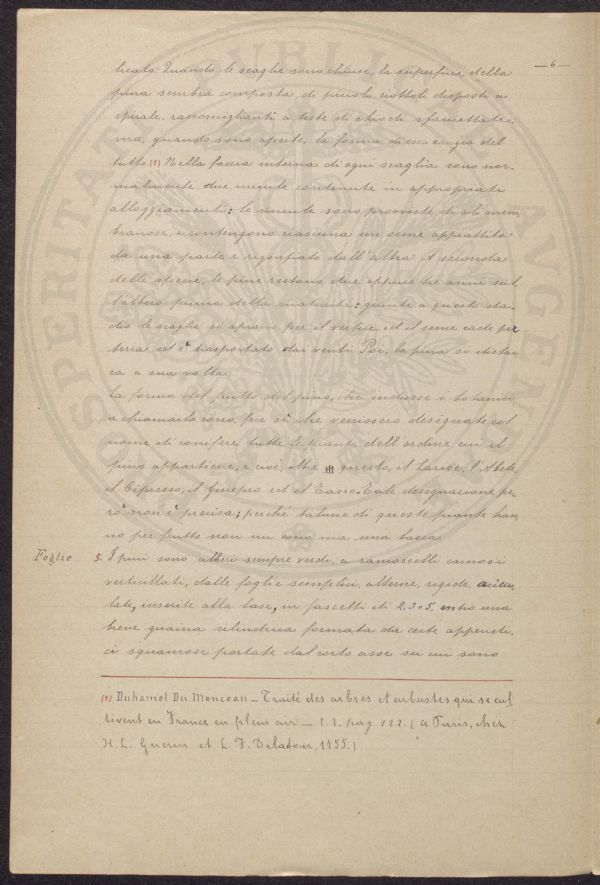 — 6 —
licato. Quando le scaglie sono chiuse, la superficie della
pina sembra composta di piccoli ciottoli disposti a
spirale, rassomiglianti a teste di chiodi sfaccettate;
ma, quando sono aperte, la forma di essa cangia del
tutto.(1) Nella faccia interna di ogni scaglia sono nor-
malmente due nucule contenute in appropriati
alloggiamenti: le nucule sono provviste di ali mem
branose, e contengono ciascuna un seme appiattito
da una parte e rigonfiato dall'altra. A seconda
delle specie, le pine restano due oppure tre anni sul
l'albero prima della maturità: giunte a questo sta-
dio le scaglie si aprono per il vertice, ed il seme cade per
terra ed è trasportato dai venti. Poi, la pina si distac
ca a sua volta.
La forma del frutto del pino, che indusse i botanici
a chiamarlo cono, fece sì che venissero designate col
nome di conifere tutte le piante dell'ordine cui il
pino appartiene, e cioè, oltre questo, il Larice, l'Abete,
il Cipresso, il Ginepro ed il Tasso. Tale designazione pe-
rò non è precisa; perché talune di queste piante han
no per frutto non un cono ma una bacca.
Foglie 5. I pini sono alberi sempre verdi, a ramoscelli carnosi
verticillati, dalle foglie semplici, alterne, rigide, acicu-
late, inserite alla base, in fascetti di 2, 3 o 5, entro una
breve guaina cilindrica formata da certe appendi-
ci squamose portate dal corto asse su cui sono
(1) Duhamel Du Monceau — Traité des arbres et arbustes qui se cul
tivent en France en plein air — t. 2. pag. 122. (à Paris, chez
H. L. Guerin et L. F. Delatour, 1755.)